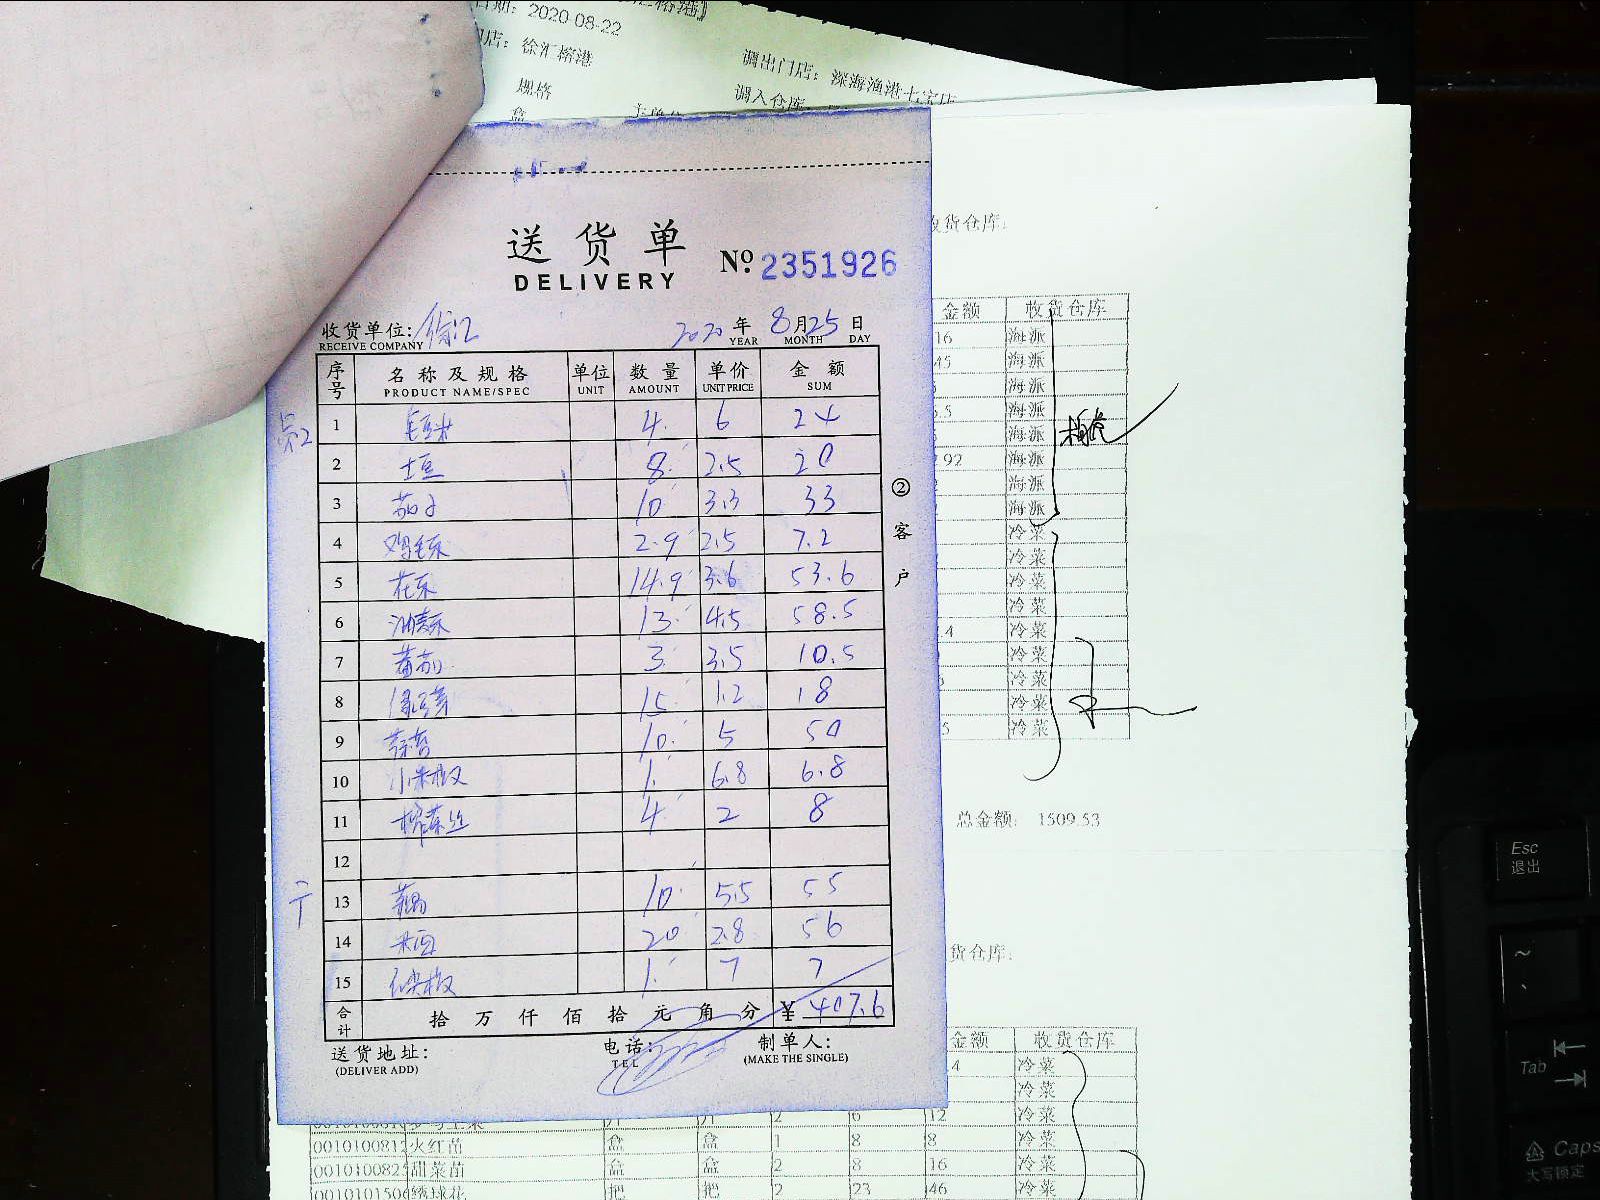 2020-08-22
徐汇榕港
规格
盒
调出门店：深海渔港七宝店
调入仓库：
送货单
DELIVERY
№ 2351926
收货单位: 徐汇
RECEIVE COMPANY
2020 年 8 月 25 日
YEAR MONTH DAY
序号 名称及规格 单位 数量 单价 金额
PRODUCT NAME/SPEC UNIT AMOUNT UNIT PRICE SUM
1 毛豆米 4 6 24
2 土豆 8 2.5 20
3 茄子 10 3.3 33
4 鸡毛菜 2.9 2.5 7.2
5 花菜 14.9 3.6 53.6
6 油麦菜 13 4.5 58.5
7 蕃茄 3 3.5 10.5
8 绿豆芽 15 1.2 18
9 10 5 50
10 小米椒 1 6.8 6.8
11 榨菜丝 4 2 8
12
13 藕 10 5.5 55
14 20 2.8 56
15 1 7 7
合计 拾 万 仟 佰 拾 元 角 分 ¥ 407.6
送货地址:
(DELIVER ADD)
电话:
TEL
制单人:
(MAKE THE SINGLE)
②客户
收货仓库:
金额 收货仓库
16 海派
45 海派
海派
.5 海派
海派
92 海派
海派
海派
冷菜
冷菜
冷菜
冷菜
.4 冷菜
冷菜
冷菜
冷菜
5 冷菜
总金额: 1509.53
货仓库:
金额 收货仓库
4 冷菜
冷菜
2 6 12 冷菜
火红苗 盒 盒 1 8 8 冷菜
甜菜苗 盒 盒 2 8 16 冷菜
绣球花 把 把 2 23 46 冷菜
Esc
退出
~
Tab
Caps
大写锁定